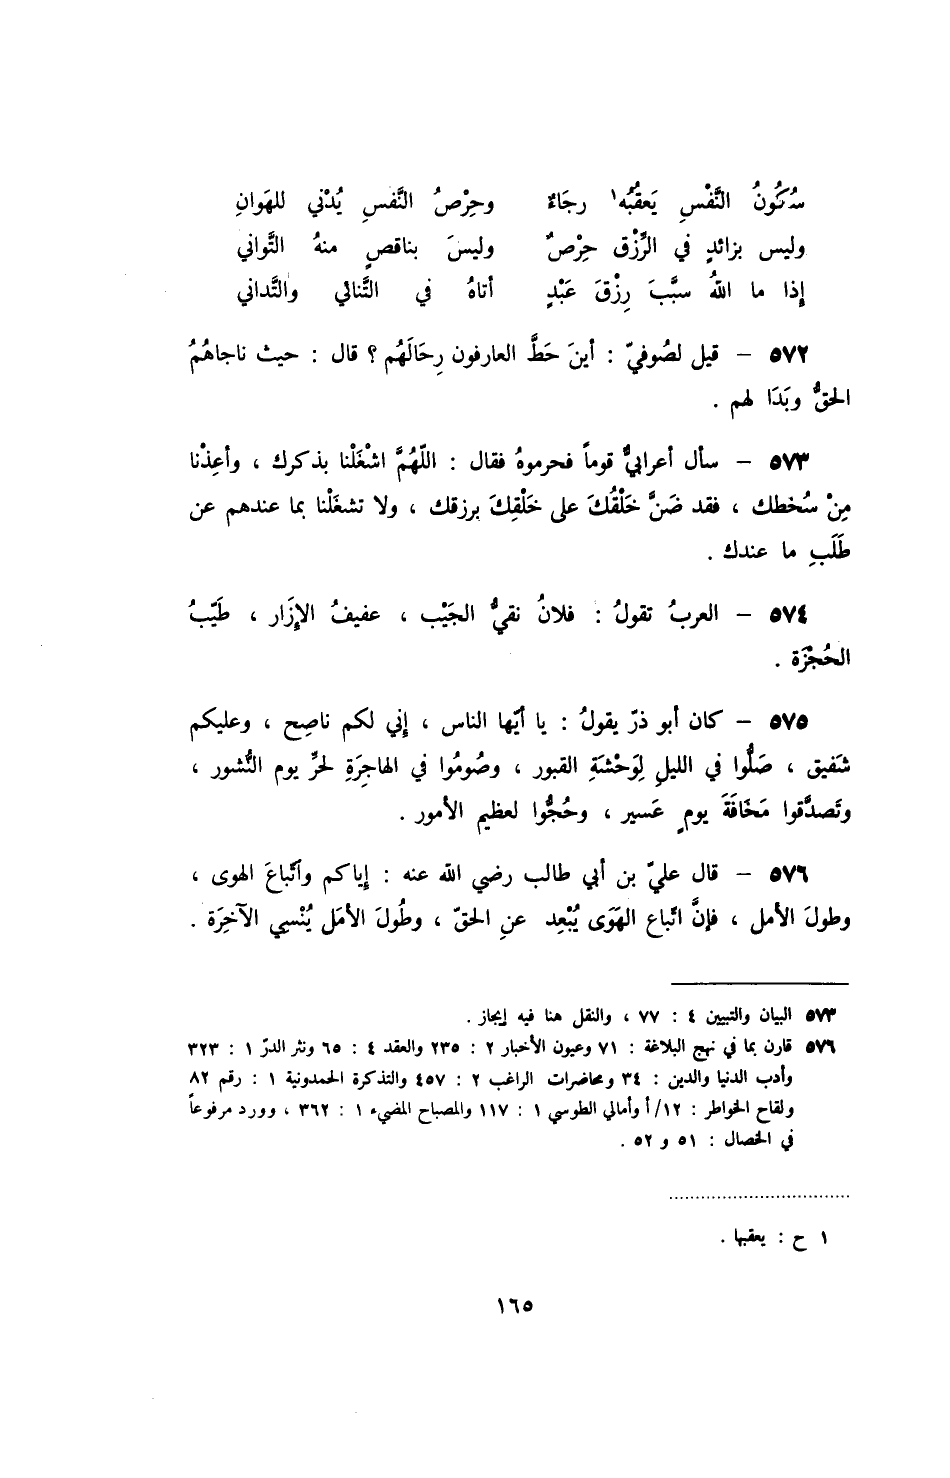 سُكُونُ النَّفْسِ يَعقُبُه١ُ رجَاءٌ وحِرْصُ النَّفسِ يُدْني للهَوانِ
وليس بزائدٍ في الرِّزْق حِرْصٌ وليسَ بناقصٍ منهُ التَّواني
إذا ما اللهُ سبَّبَ رِزْقَ عَبْدٍ أتاهُ في التَّنائي والتَّداني
٥٧٢ – قيل لصُوفيّ : أينَ حَطَّ العارفون رِحَالَهُم ؟ قال : حيث ناجاهُمُ
الحقُّ وبَدَا لهم .
٥٧٣ – سأل أعرابيٌّ قوماً فحرموهُ فقال : اللّهُمَّ اشْغَلْنا بذكرك ، وأعِذْنا
مِنْ سُخطك ، فقد ضَنَّ خَلْقُكَ على خَلْقِكَ برزقك ، ولا تشغَلْنا بما عندهم عن
طَلَبِ ما عندك .
٥٧٤ – العربُ تقولُ : فلانٌ نقيُّ الجَيْب ، عفيفُ الإزَار ، طَيّبُ
الحُجْزَة .
٥٧٥ – كان أبو ذرّ يقولُ : يا أيّها الناس ، إني لكم ناصِح ، وعليكم
شَفيق ، صَلُّوا في الليلِ لِوَحْشَةِ القبور ، وصُومُوا في الهاجِرَةِ لحرِّ يوم النُّشور ،
وتَصدَّقوا مَخَافَةَ يومٍ عَسير ، وحُجُّوا لعظيم الأمور .
٥٧٦ – قال عليّ بن أبي طالب رضي الله عنه : إياكم واتّباعَ الهوى ،
وطولَ الأمل ، فإنَّ اتّباع الهَوَى يُبْعِد عنِ الحقّ ، وطُولَ الأمَل يُنْسِي الآخِرَة .
٥٧٣ البيان والتبيين ٤ : ٧٧ ، والنقل هنا فيه إيجاز .
٥٧٦ قارن بما في نهج البلاغة : ٧١ وعيون الأخبار ٢ : ٢٣٥ والعقد ٤ : ٦٥ ونثر الدرّ ١ : ٣٢٣
وأدب الدنيا والدين : ٣٤ ومحاضرات الراغب ٢ : ٤٥٧ والتذكرة الحمدونية ١ : رقم ٨٢
ولقاح الخواطر : ١٢/ أ وأمالي الطوسي ١ : ١١٧ والمصباح المضيء ١ : ٣٦٢ ، وورد مرفوعاً
في الخصال : ٥١ و ٥٢ .
١ ح : يعقبها .
١٦٥